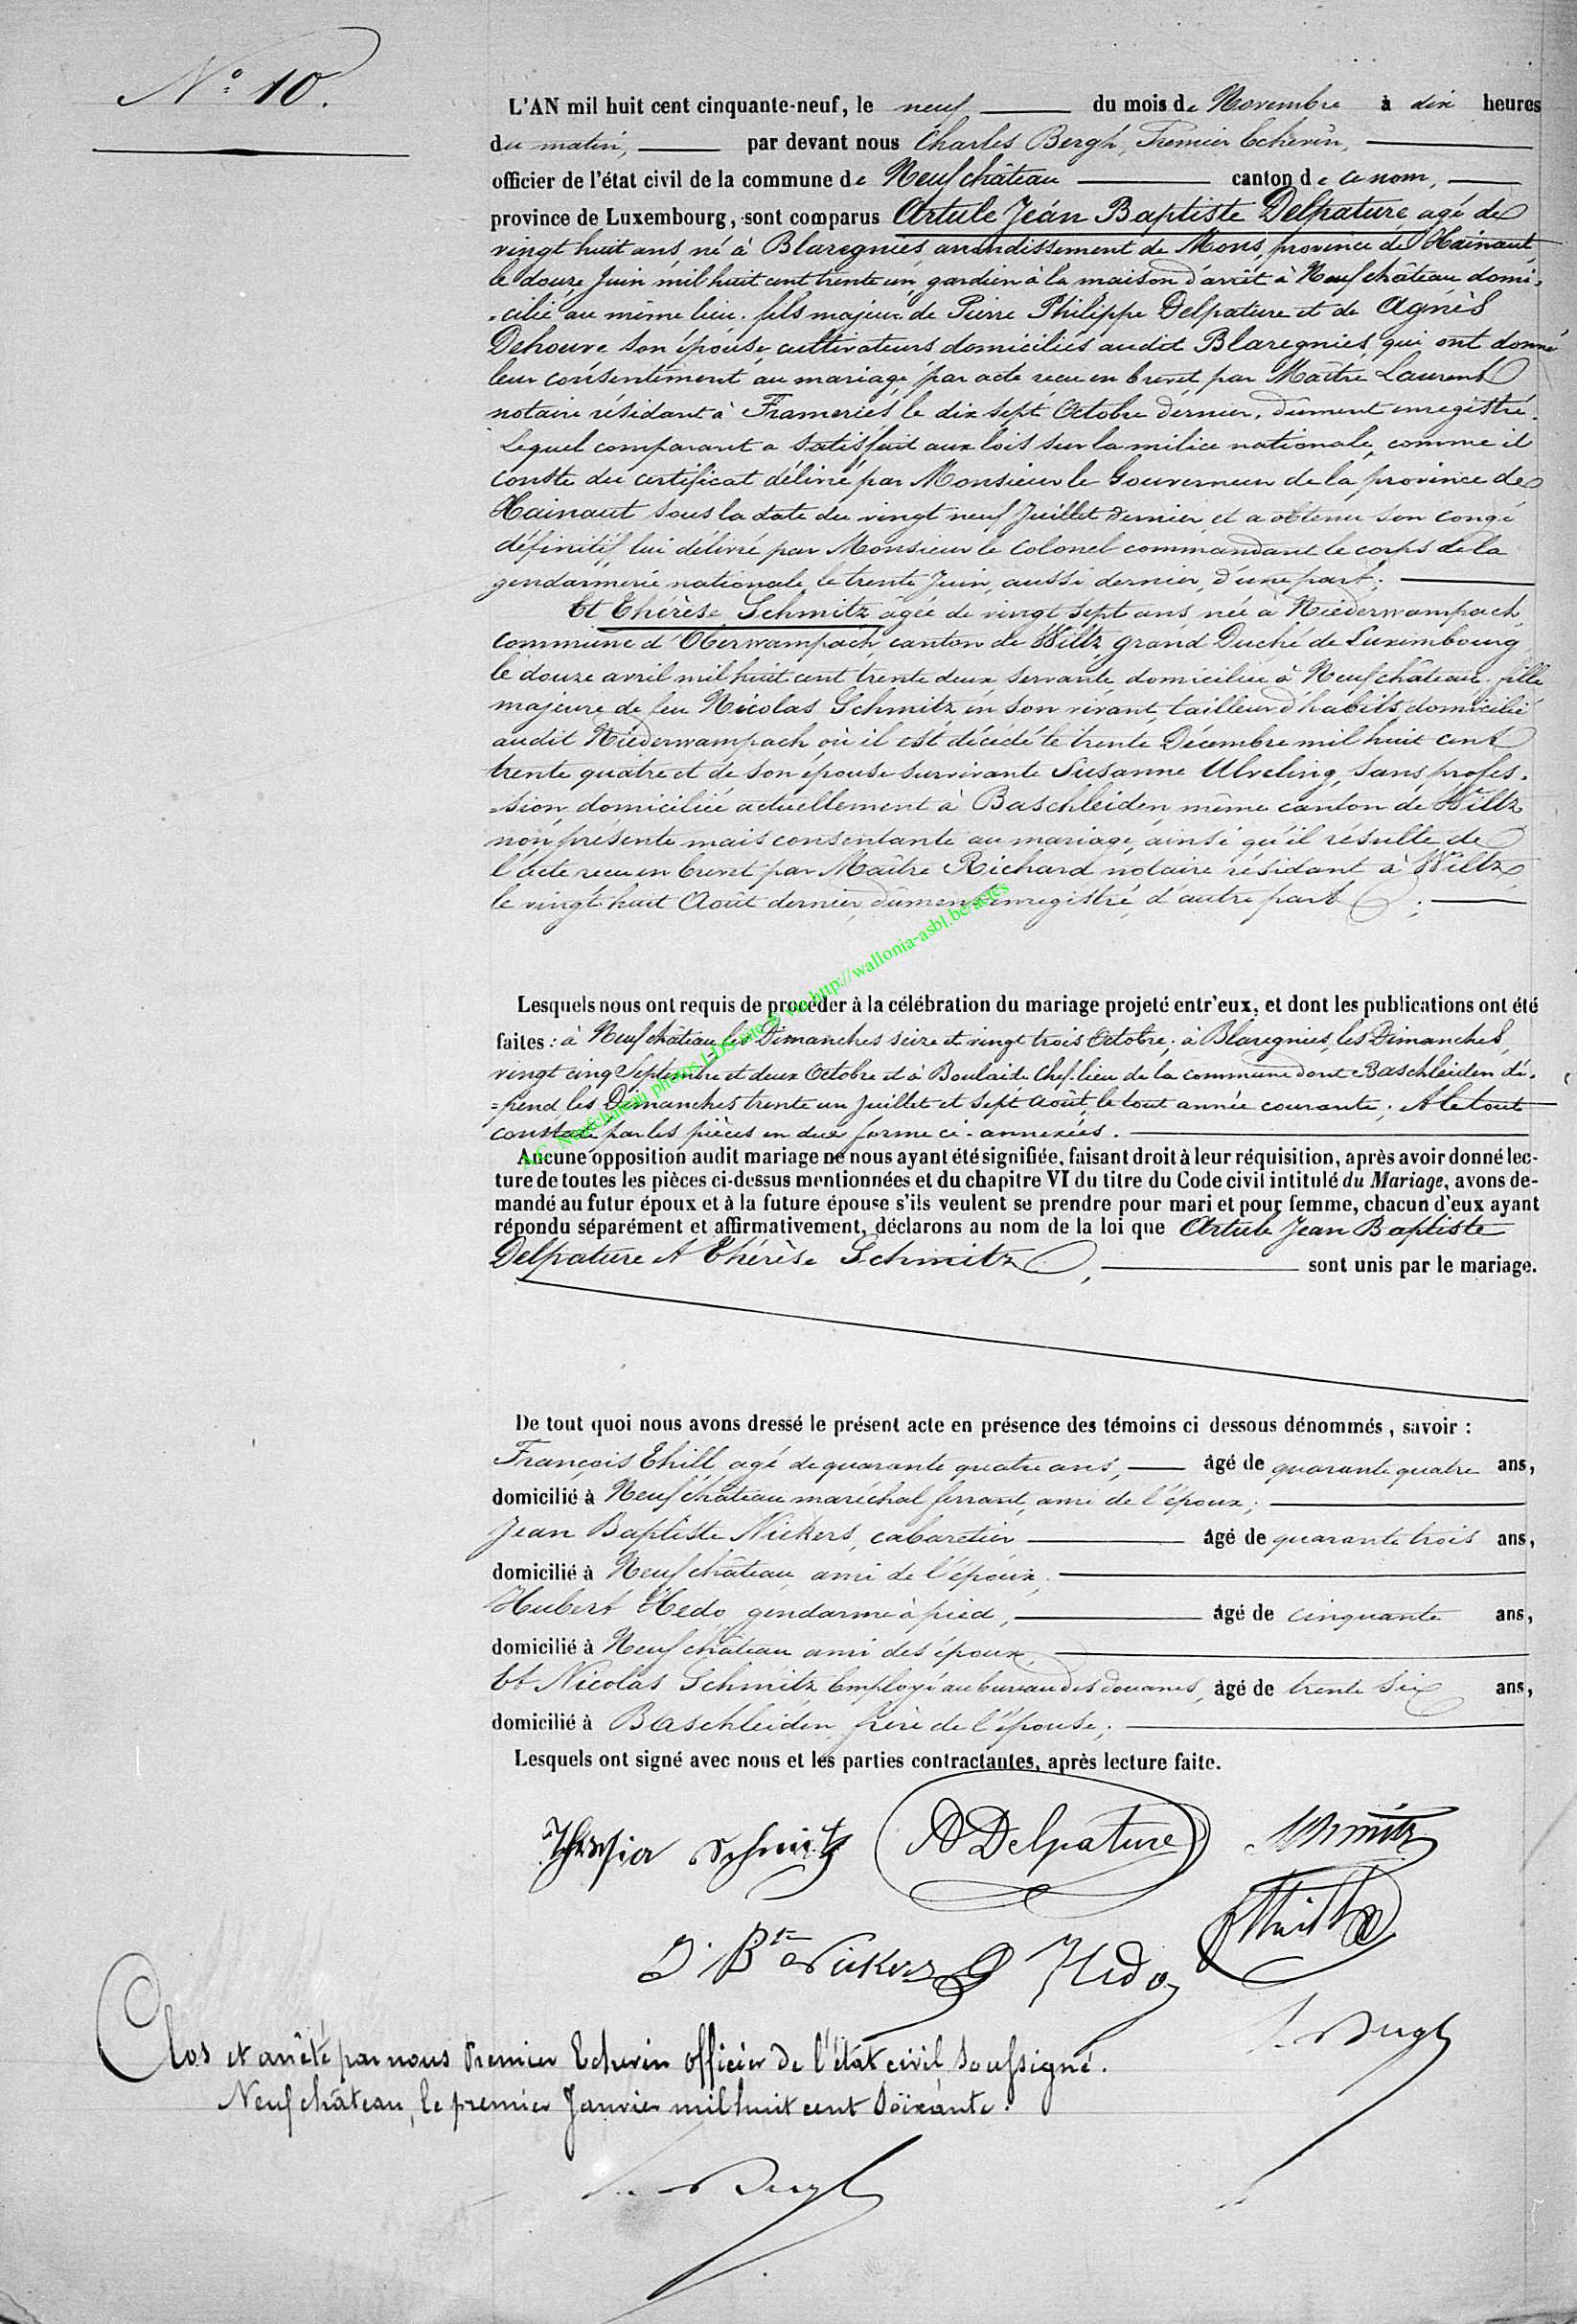 N° 10.
L'AN mil huit cent cinquante-neuf, le neuf du mois de Novembre à dix heures
du matin, par devant nous Charles Bergh, Premier Echevin,
officier de l'état civil de la commune de Neufchâteau canton de ce nom,
province de Luxembourg, sont comparus Artule Jean Baptiste Delpature agé de
vingt huit ans, né à Blaregnies, arrondissement de Mons, province de Hainaut,
le douze Juin mil huit cent trente un, gardien à la maison d'arrêt à Neufchâteau domi-
-cilié au même lieu. fils majeur de Pierre Philippe Delpature et de Agnès
Dehouve son épouse, cultivateurs domiciliés audit Blaregnies, qui ont donné
leur consentement au mariage, par acte recu en brevet par Maître Laurent
notaire résidant à Frameries, le dix sept Octobre dernier, dûment enregistré.
Lequel comparant a satisfait aux lois sur la milice nationale, comme il
conste du certificat délivré par Monsieur le Gouverneur de la province de
Hainaut sous la date du vingt neuf Juillet dernier et a obtenu son congé
définitif lui délivré par Monsieur le Colonel commandant le corps de la
gendarmerie nationale le trente Juin, aussi dernier, d'une part;
Et Thérèse Schmitz agée de vingt sept ans née à Niederwampach,
commune d'Oberwampach, canton de Wiltz, grand Duché de Luxembourg
le douze avril mil huit cent trente deux servante, domiciliée à Neufchâteau. fille
majeure de feu Nicolas Schmitz en son vivant, tailleur d'habits domicilié
audit Niederwampach où il est décédé le trente Décembre mil huit cent
trente quatre et de son épouse survivante Susanne Ulveling, sans profes-
-sion, domiciliée actuellement à Baschleiden, même canton de Wiltz
non présente mais consentante au mariage, ainsi qu'il résulte de
l'acte recu en brevet par Maître Richard notaire résidant à Wiltz,
le vingt huit Août dernier, dûment enregistré, d'autre part;
Lesquels nous ont requis de procéder à la célébration du mariage projeté entr'eux, et dont les publications ont été
faites: à Neufchâteau les Dimanches seize et vingt trois Octobre; à Blaregnies, les Dimanches,
vingt cinq Septembre et deux Octobre et à Boulaide Chef-lieu de la commune dont Baschleiden dé-
=pend les Dimanches trente un Juillet et sept Août, le tout année courante; et le tout
constaté par les pièces en due forme ci-annexées.
Aucune opposition audit mariage ne nous ayant été signifiée, faisant droit à leur réquisition, après avoir donné lec-
ture de toutes les pièces ci-dessus mentionnées et du chapitre VI du titre du Code civil intitulé du Mariage, avons de-
mandé au futur époux et à la future épouse s'ils veulent se prendre pour mari et pour femme, chacun d'eux ayant
répondu séparément et affirmativement, déclarons au nom de la loi que Artule Jean Baptiste
Delpature et Thérèse Schmitz, sont unis par le mariage.
De tout quoi nous avons dressé le présent acte en présence des témoins ci dessous dénommés, savoir :
François Thill agé de quarante quatre ans, agé de quarante quatre ans,
domicilié à Neufchâteau maréchal ferrant, ami de l'époux;
Jean Baptiste Nickers, cabaretier agé de quarante trois ans,
domicilié à Neufchâteau, ami de l'époux,
Hubert Hedo, gendarme à pied, agé de cinquante ans,
domicilié à Neufchâteau ami des époux,
Et Nicolas Schmitz Employé au bureau des douanes, agé de trente six ans,
domicilié à Baschleiden, frère de l'épouse;
Lesquels ont signé avec nous et les parties contractantes, après lecture faite.
Theresia Schmitz ADelpature Schmitz
J. Bte Nickers Hedo
Bergh
Clos et arrêté par nous Premier Echevin officier de l'état civil soussigné.
Neufchâteau, le premier Janvier mil huit cent soixante.
Bergh
A.C. Neufchateau photos LDS site via http://wallonia-asbl.be/actes